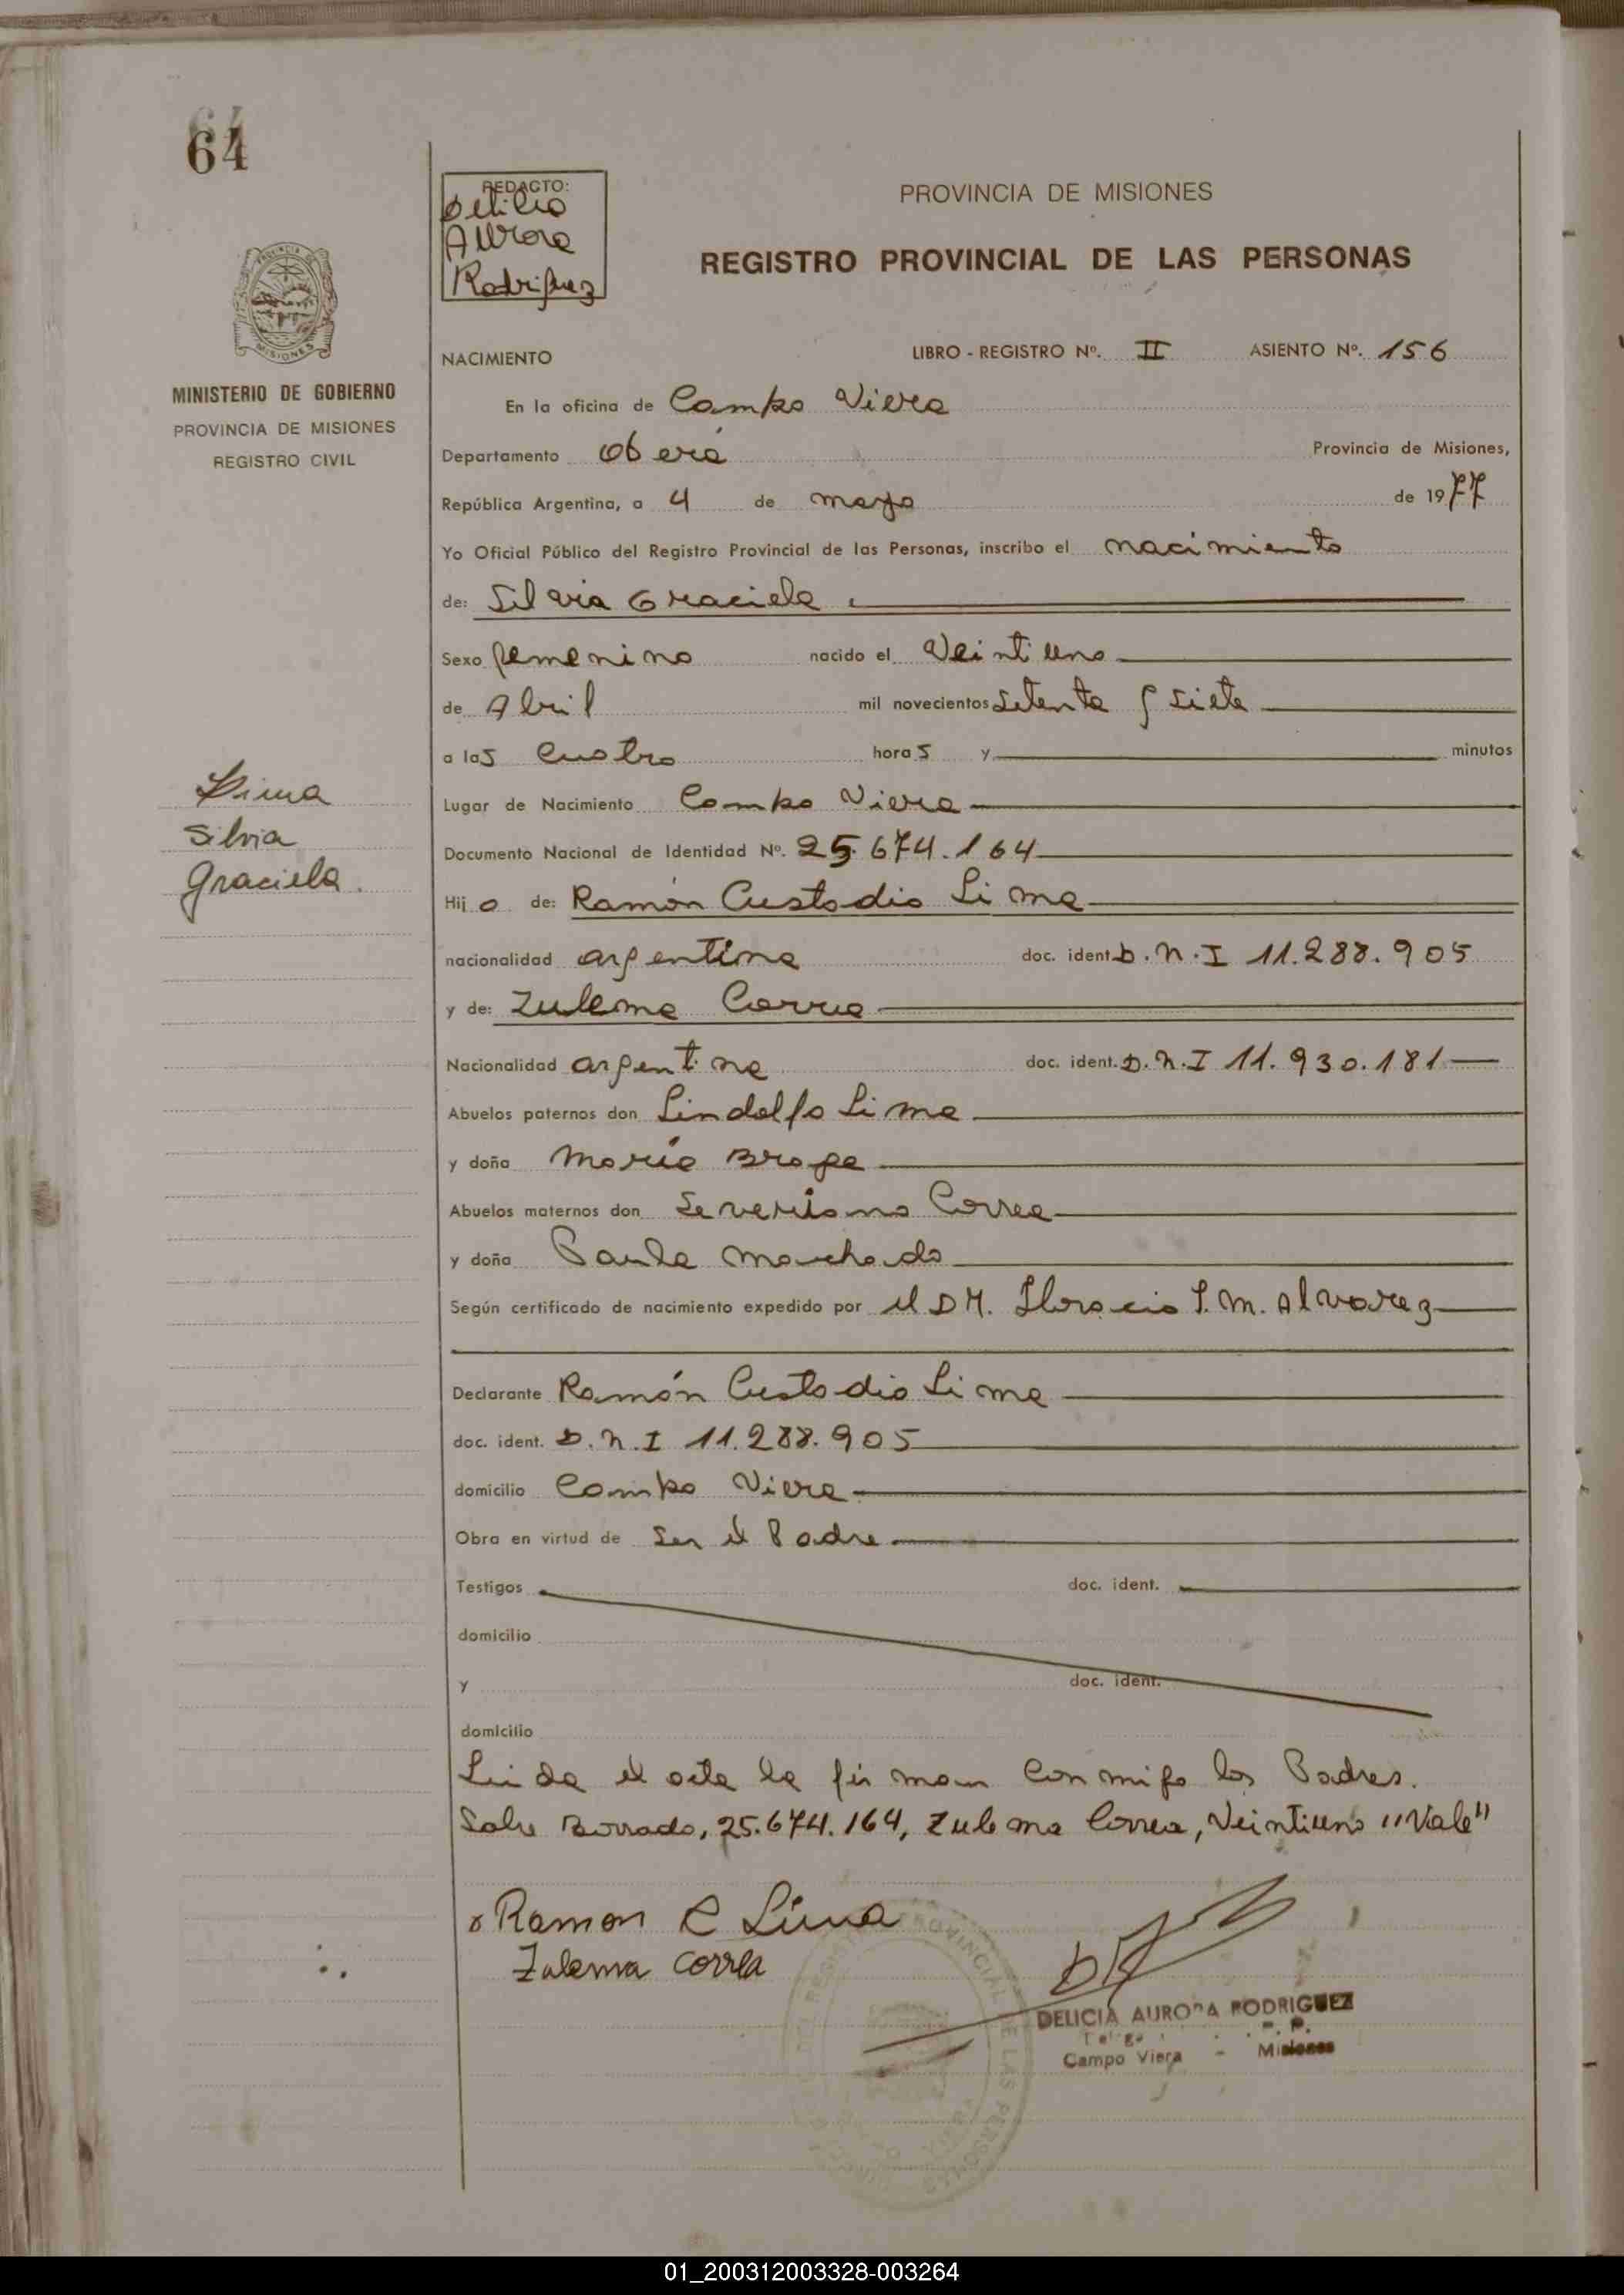 64
REDACTO:
Delicia
Aurora
Rodriguez
PROVINCIA DE MISIONES
REGISTRO PROVINCIAL DE LAS PERSONAS
MISIONES
MINISTERIO DE GOBIERNO
PROVINCIA DE MISIONES
REGISTRO CIVIL
NACIMIENTO
LIBRO - REGISTRO Nº. II ASIENTO Nº. 156
En la oficina de Campo Viera
Departamento Oberá Provincia de Misiones,
República Argentina, a 4 de mayo de 1977
Yo Oficial Público del Registro Provincial de las Personas, inscribo el nacimiento
de: Silvia Graciela
Sexo femenino nacido el Veintiuno
de Abril mil novecientos setenta y siete
a las cuatro horas y minutos
Lugar de Nacimiento Campo Viera
Documento Nacional de Identidad Nº. 25.674.164
Lima
Silvia
Graciela.
Hija de: Ramón Custodio Lima
nacionalidad argentina doc. ident. D.N.I 11.288.905
y de: Zulema Correa
Nacionalidad argentina doc. ident. D.N.I 11.930.181
Abuelos paternos don Lindolfo Lima
y doña María Braga
Abuelos maternos don Severiano Correa
y doña Paula Machado
Según certificado de nacimiento expedido por el DR. Horacio M. Alvarez
Declarante Ramón Custodio Lima
doc. ident. D.N.I 11.288.905
domicilio Campo Viera
Obra en virtud de Ser el Padre
Testigos doc. ident.
domicilio
y doc. ident.
domicilio
Leida el acta la firman conmigo los Padres.
Sobre Borrado, 25.674.164, Zulema Correa, Veintiuno "Vale"
Ramon C Lima
Zulema correa
DELICIA AURORA RODRIGUEZ
Campo Viera - Misiones
01_200312003328-003264